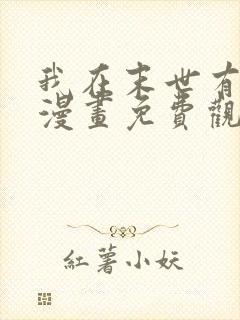 我在末世有
漫畫免費觀
紅薯小妖